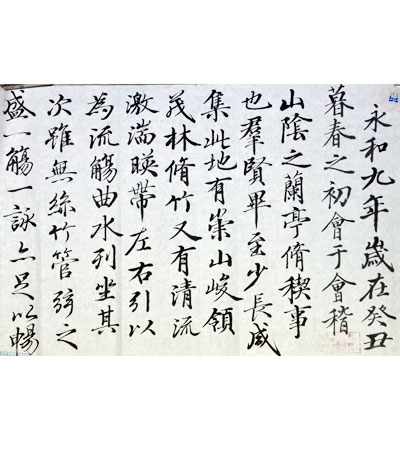 永和九年歲在癸丑
暮春之初會于會稽
山陰之蘭亭脩稧事
也羣賢畢至少長咸
集此地有崇山峻領
茂林脩竹又有清流
激湍暎帶左右引以
為流觴曲水列坐其
次雖無絲竹管弦之
盛一觴一詠亦足以暢